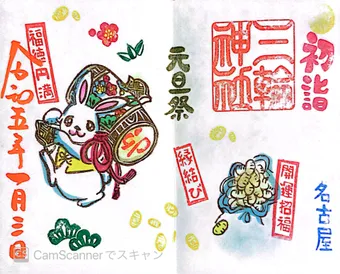 初詣
三輪
神社
名古屋
開運招福
縁結び
元旦祭
福徳円満
令和五年一月三日
CS CamScannerでスキャン